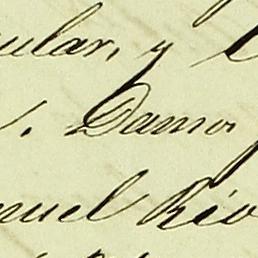 ular, y
. Damo
nuel Rio